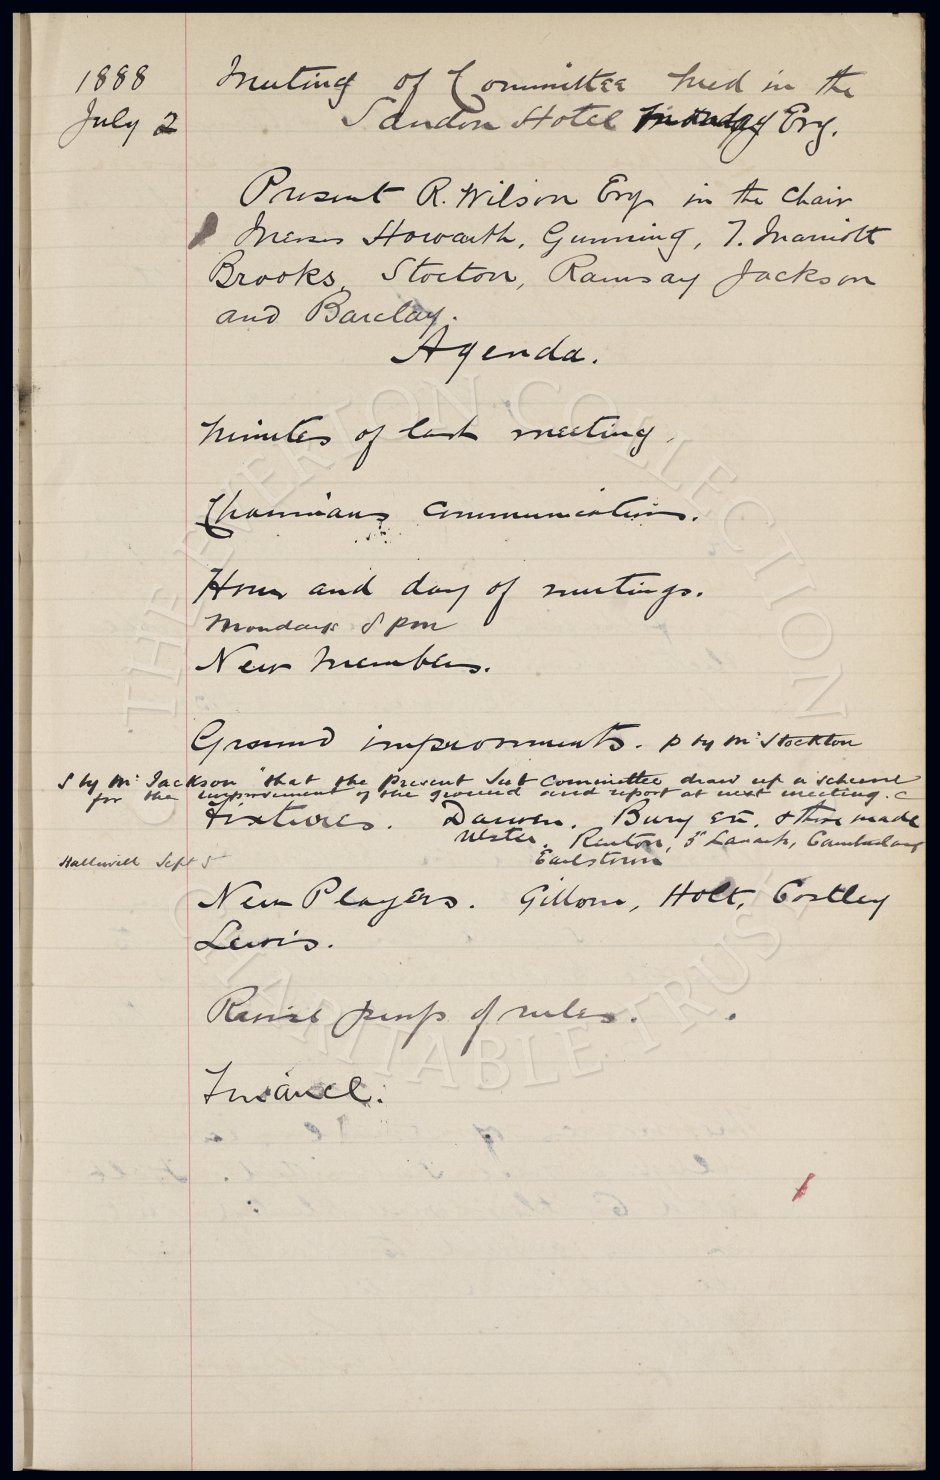 1888
July 2
Meeting of Committee held in the
Sandon Hotel Monday Evg.
Present R. Wilson Esq in the Chair
Messrs Howarth, Gunning, T. Marriott
Brooks, Stocton, Ramsay Jackson
and Barclay.
Agenda.
Minutes of last meeting.
Chairmans communications.
Hour and day of meetings.
Mondays 8 pm
New Members.
Ground improvements. p by Mr Stockton
S by Mr Jackson "that the present Sub Committee draw up a scheme
for the improvement of the ground and report at next meeting. C
Fixtures. Darwen, Bury etc, & those made
Ulster, Renton, 3rd Lanark, Cambuslang
Earlstown
Halliwell Sept 5
New Players. Gillom, Holt, Costley
Lewis.
Revise proofs of rules.
Finance.
THE EVERTON COLLECTION
CHARITABLE TRUST